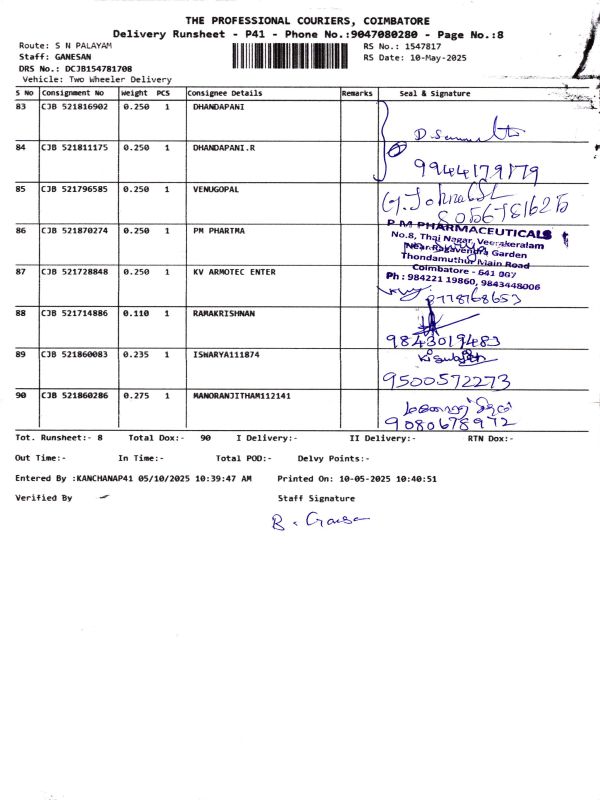 THE PROFESSIONAL COURIERS, COIMBATORE
Delivery Runsheet - P41 - Phone No.:9047080280 - Page No.:8
Route: S N PALAYAM
RS No.: 1547817
Staff: GANESAN
RS Date: 10-May-2025
DRS No.: DCJB154781708
Vehicle: Two Wheeler Delivery
S No Consignment No Weight PCS Consignee Details Remarks Seal & Signature
83 CJB 521816902 0.250 1 DHANDAPANI
84 CJB 521811175 0.250 1 DHANDAPANI.R
9944179179
85 CJB 521796585 0.250 1 VENUGOPAL
86 CJB 521870274 0.250 1 PM PHARTMA
P M PHARMACEUTICALS
No.8, Thai Nagar, Veerakeralam
Near Ragavendra Garden
Thondamuthur Main Road
Coimbatore - 641 007
Ph : 984221 19860, 9843448006
87 CJB 521728848 0.250 1 KV ARMOTEC ENTER
88 CJB 521714886 0.110 1 RAMAKRISHNAN
9843019483
89 CJB 521860083 0.235 1 ISWARYA111874
9500572273
90 CJB 521860286 0.275 1 MANORANJITHAM112141
9080678972
Tot. Runsheet:- 8 Total Dox:- 90 I Delivery:- II Delivery:- RTN Dox:-
Out Time:- In Time:- Total POD:- Delvy Points:-
Entered By :KANCHANAP41 05/10/2025 10:39:47 AM Printed On: 10-05-2025 10:40:51
Verified By Staff Signature